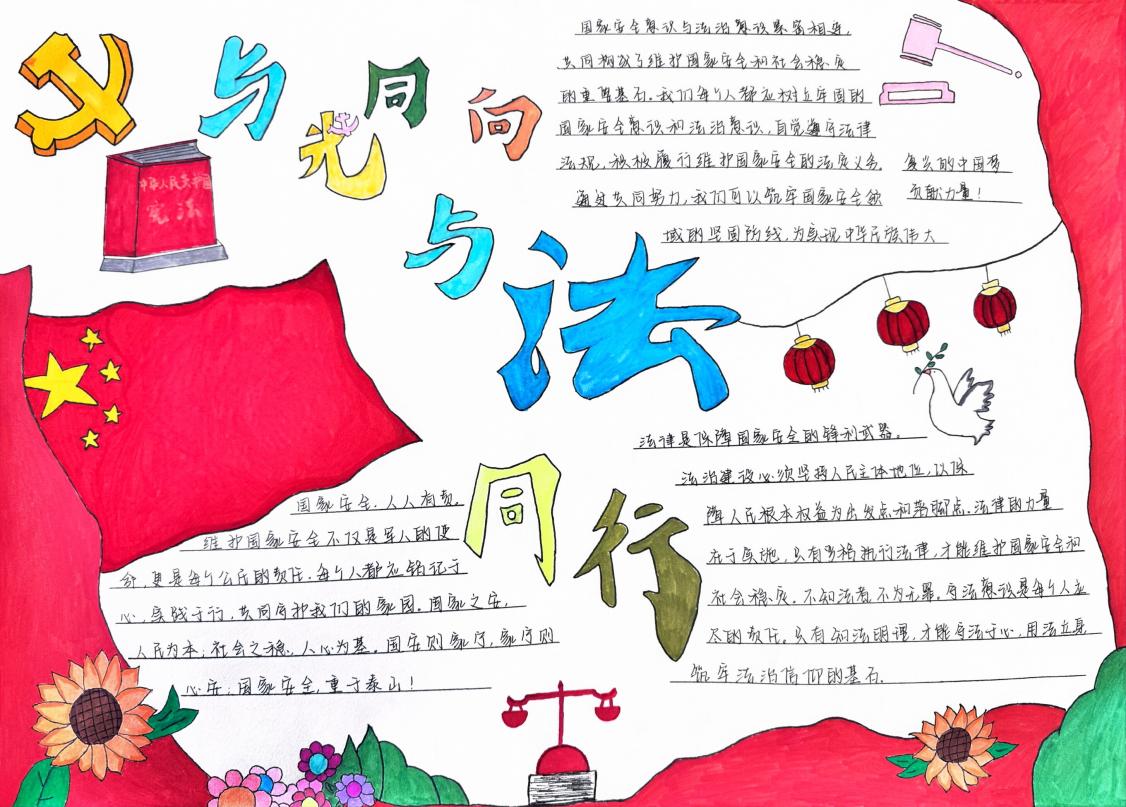 与光同向
与法同行
中华人民共和国
宪法
国家安全意识与法治意识紧密相连,
共同构成了维护国家安全和社会稳定
的重要基石。我们每个人都应树立牢固的
国家安全意识和法治意识,自觉遵守法律
法规,积极履行维护国家安全的法定义务。
通过共同努力,我们可以筑牢国家安全领
域的坚固防线,为实现中华民族伟大
复兴的中国梦
贡献力量!
国家安全,人人有责。
维护国家安全不仅是军人的使
命,更是每个公民的责任。每个人都应铭记于
心,实践于行,共同守护我们的家园。国家之安,
人民为本;社会之稳,人心为基。国安则家宁,家宁则
心安;国家安全,重于泰山!
法律是保障国家安全的锋利武器。
法治建设必须坚持人民主体地位,以保
障人民根本权益为出发点和落脚点。法律的力量
在于实施,只有严格执行法律,才能维护国家安全和
社会稳定。不知法者,不为无罪。守法意识是每个人应
尽的责任。只有知法明理,才能守法于心,用法立身
筑牢法治信仰的基石。